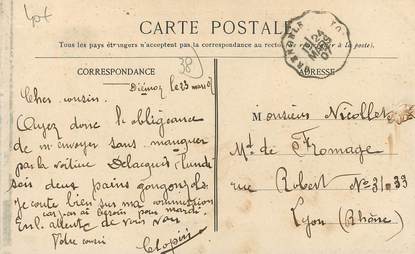 CARTE POSTALE
Tous les pays étrangers n'acceptent pas la correspondance au recto à la poste).
38
CORRESPONDANCE
ADRESSE
GRENOBLE
Diémoz le 23 mars
Cher cousin.
Ayez donc l'obligeance
de m'envoyer sans manquer
par la voiture Delacquis lundi
soir deux pains gorgonzola.
Je compte bien sur ma commission
car j'en ai besoin pour mardi.
En l'attente de vous voir
Votre cousin
Clopin
Monsieur Nicollet
Md. de Fromage
rue Robert No 31_33
Lyon (Rhône)